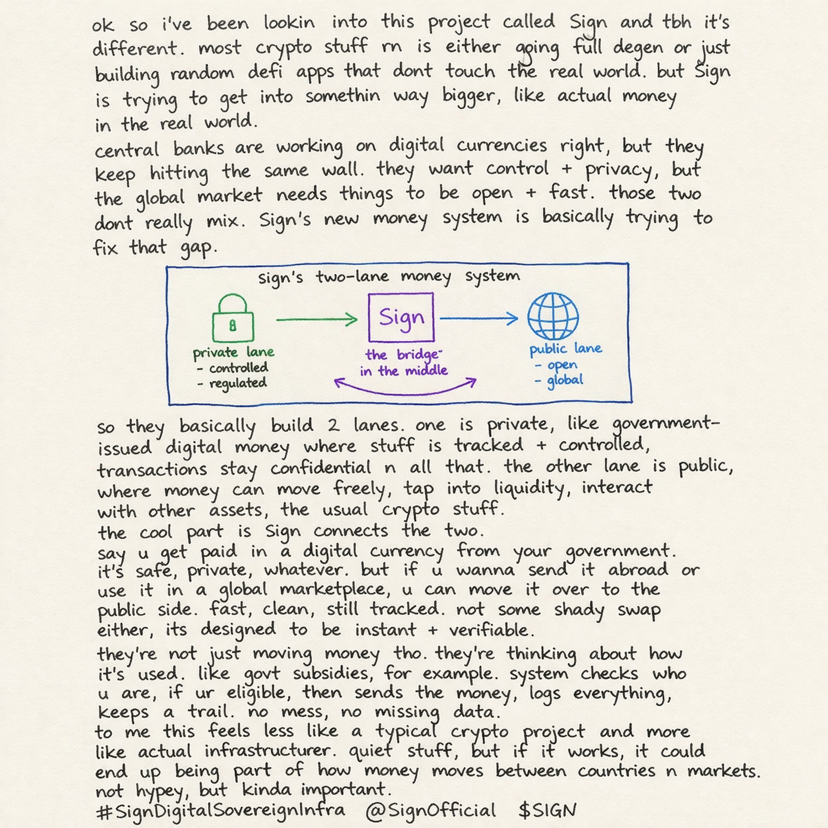 ok so i've been lookin into this project called Sign and tbh it's
different. most crypto stuff rn is either going full degen or just
building random defi apps that dont touch the real world. but Sign
is trying to get into somethin way bigger, like actual money
in the real world.
central banks are working on digital currencies right, but they
keep hitting the same wall. they want control + privacy, but
the global market needs things to be open + fast. those two
dont really mix. Sign's new money system is basically trying to
fix that gap.
sign's two-lane money system
Sign
private lane
- controlled
- regulated
the bridge
in the middle
public lane
- open
- global
so they basically build 2 lanes. one is private, like government-
issued digital money where stuff is tracked + controlled,
transactions stay confidential n all that. the other lane is public,
where money can move freely, tap into liquidity, interact
with other assets, the usual crypto stuff.
the cool part is Sign connects the two.
say u get paid in a digital currency from your government.
it's safe, private, whatever. but if u wanna send it abroad or
use it in a global marketplace, u can move it over to the
public side. fast, clean, still tracked. not some shady swap
either, its designed to be instant + verifiable.
they're not just moving money tho. they're thinking about how
it's used. like govt subsidies, for example. system checks who
u are, if ur eligible, then sends the money, logs everything,
keeps a trail. no mess, no missing data.
to me this feels less like a typical crypto project and more
like actual infrastructurer. quiet stuff, but if it works, it could
end up being part of how money moves between countries n markets.
not hypey, but kinda important.
#SignDigitalSovereignInfra @SignOfficial $SIGN